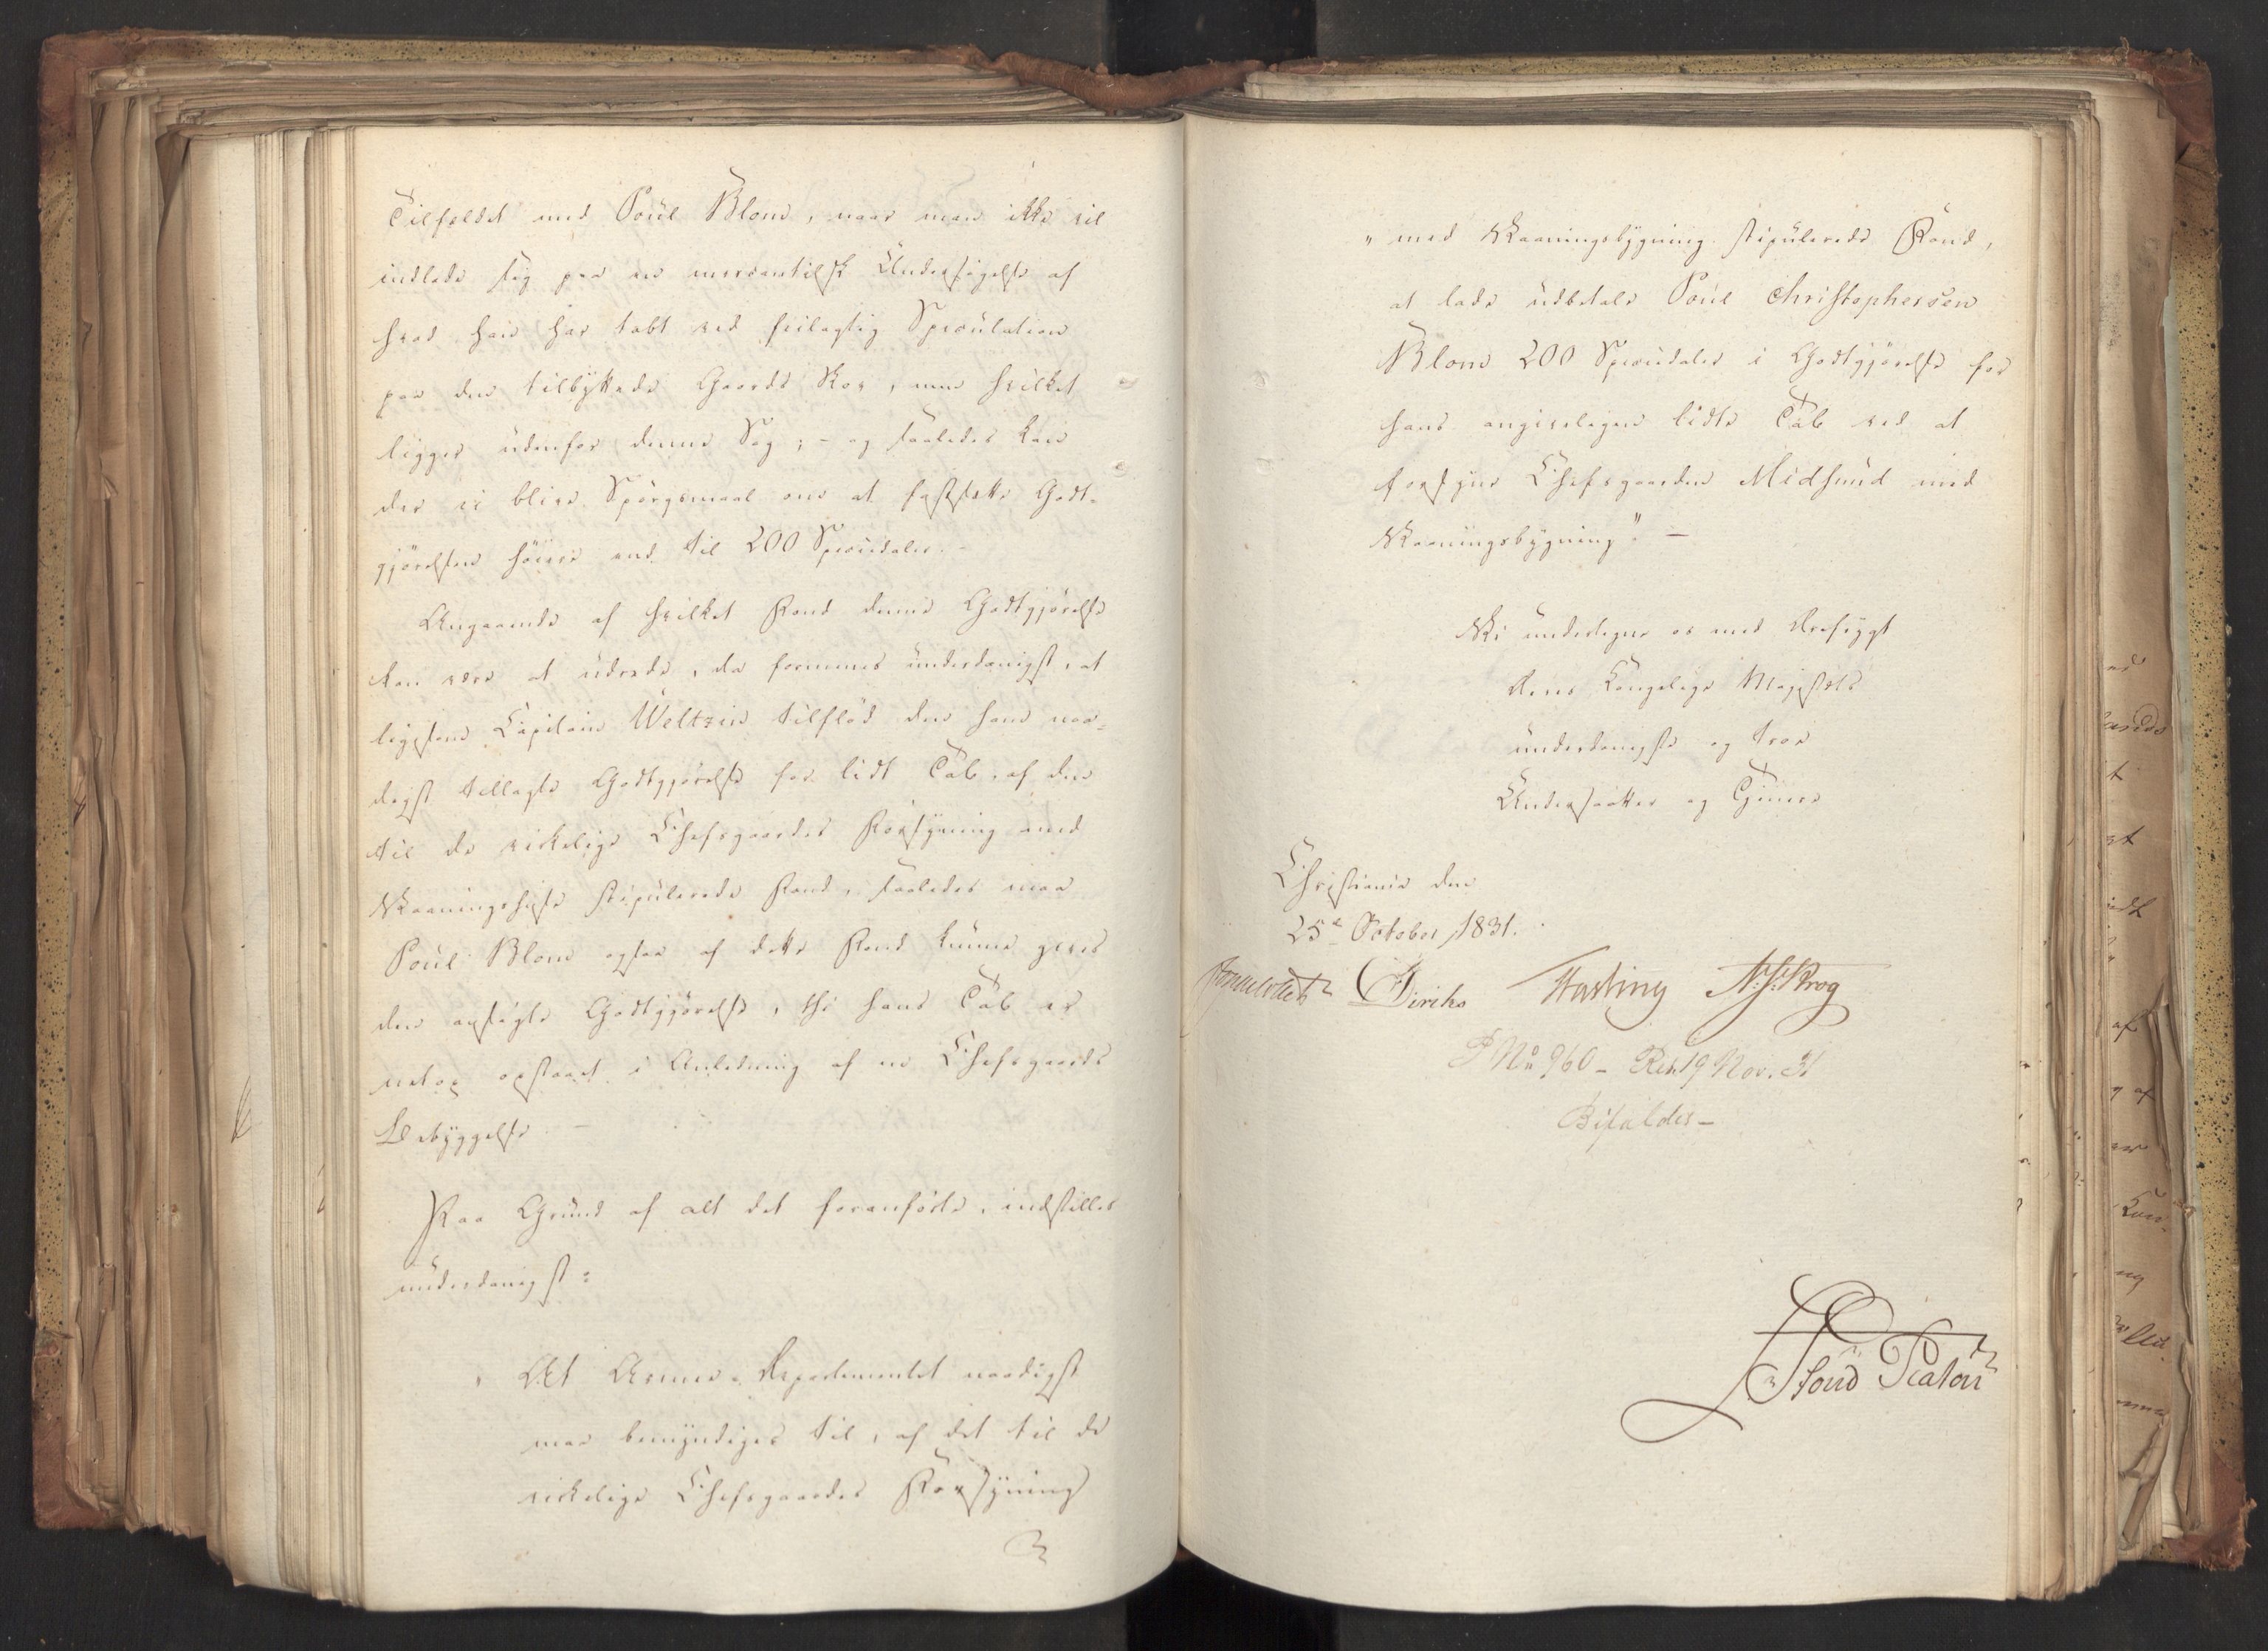 Tilfældet med Poul Blom, naar man ikke vil
indlade sig paa en mercantilsk Undersøgelse af
hvad han har tabt ved feilagtig Speculation
paa den tilbyttede Gaards Skov, men hvilket
ligger udenfor denne Sag; - og saaledes kan
der ei blive Spørgsmaal om at fastsætte Godt-
gjørelsen høiere end til 200 Speciedaler. -
Angaaende af hvilket Fond denne Godtgjørelse
kan være at udrede, da formenes underdanigst, at
ligesom Capitain Weltzin tilflød den ham naa-
digst tillagte Godtgjørelse for lidt Tab, af den
til de virkelige Chefsgaardes Forsyning med
Vaaningshuse stipulerede Fond, saaledes maa
Poul Blom ogsaa af dette Fond kunne gives
den ansøgte Godtgjørelse, thi hans Tab er
netop opstaaet i Anledning af en Chefsgaards
Bebyggelse. -
Paa Grund af alt det foranførte, indstilles
underdanigst:
" At Armee-Departementet naadigst
maa bemyndiges til, af det til de
virkelige Chefsgaardes Forsyning
" med Vaaningsbygning stipulerede Fond,
at lade udbetale Poul Christophersen
Blom 200 Speciedaler i Godtgjørelse for
hans angiveligen lidte Tab ved at
forsyne Chefsgaarden Midsund med
Vaaningsbygning". -
Vi undertegne os med Dybsygt
Deres Kongelige Majestæts
underdanigste og troe
Undersaatter og Tjenere
Christiania den
25de October 1831.
Diriks Fasting N. J. Krog
P No 960 - Res. 19 Nov. 31
Bifaldes -